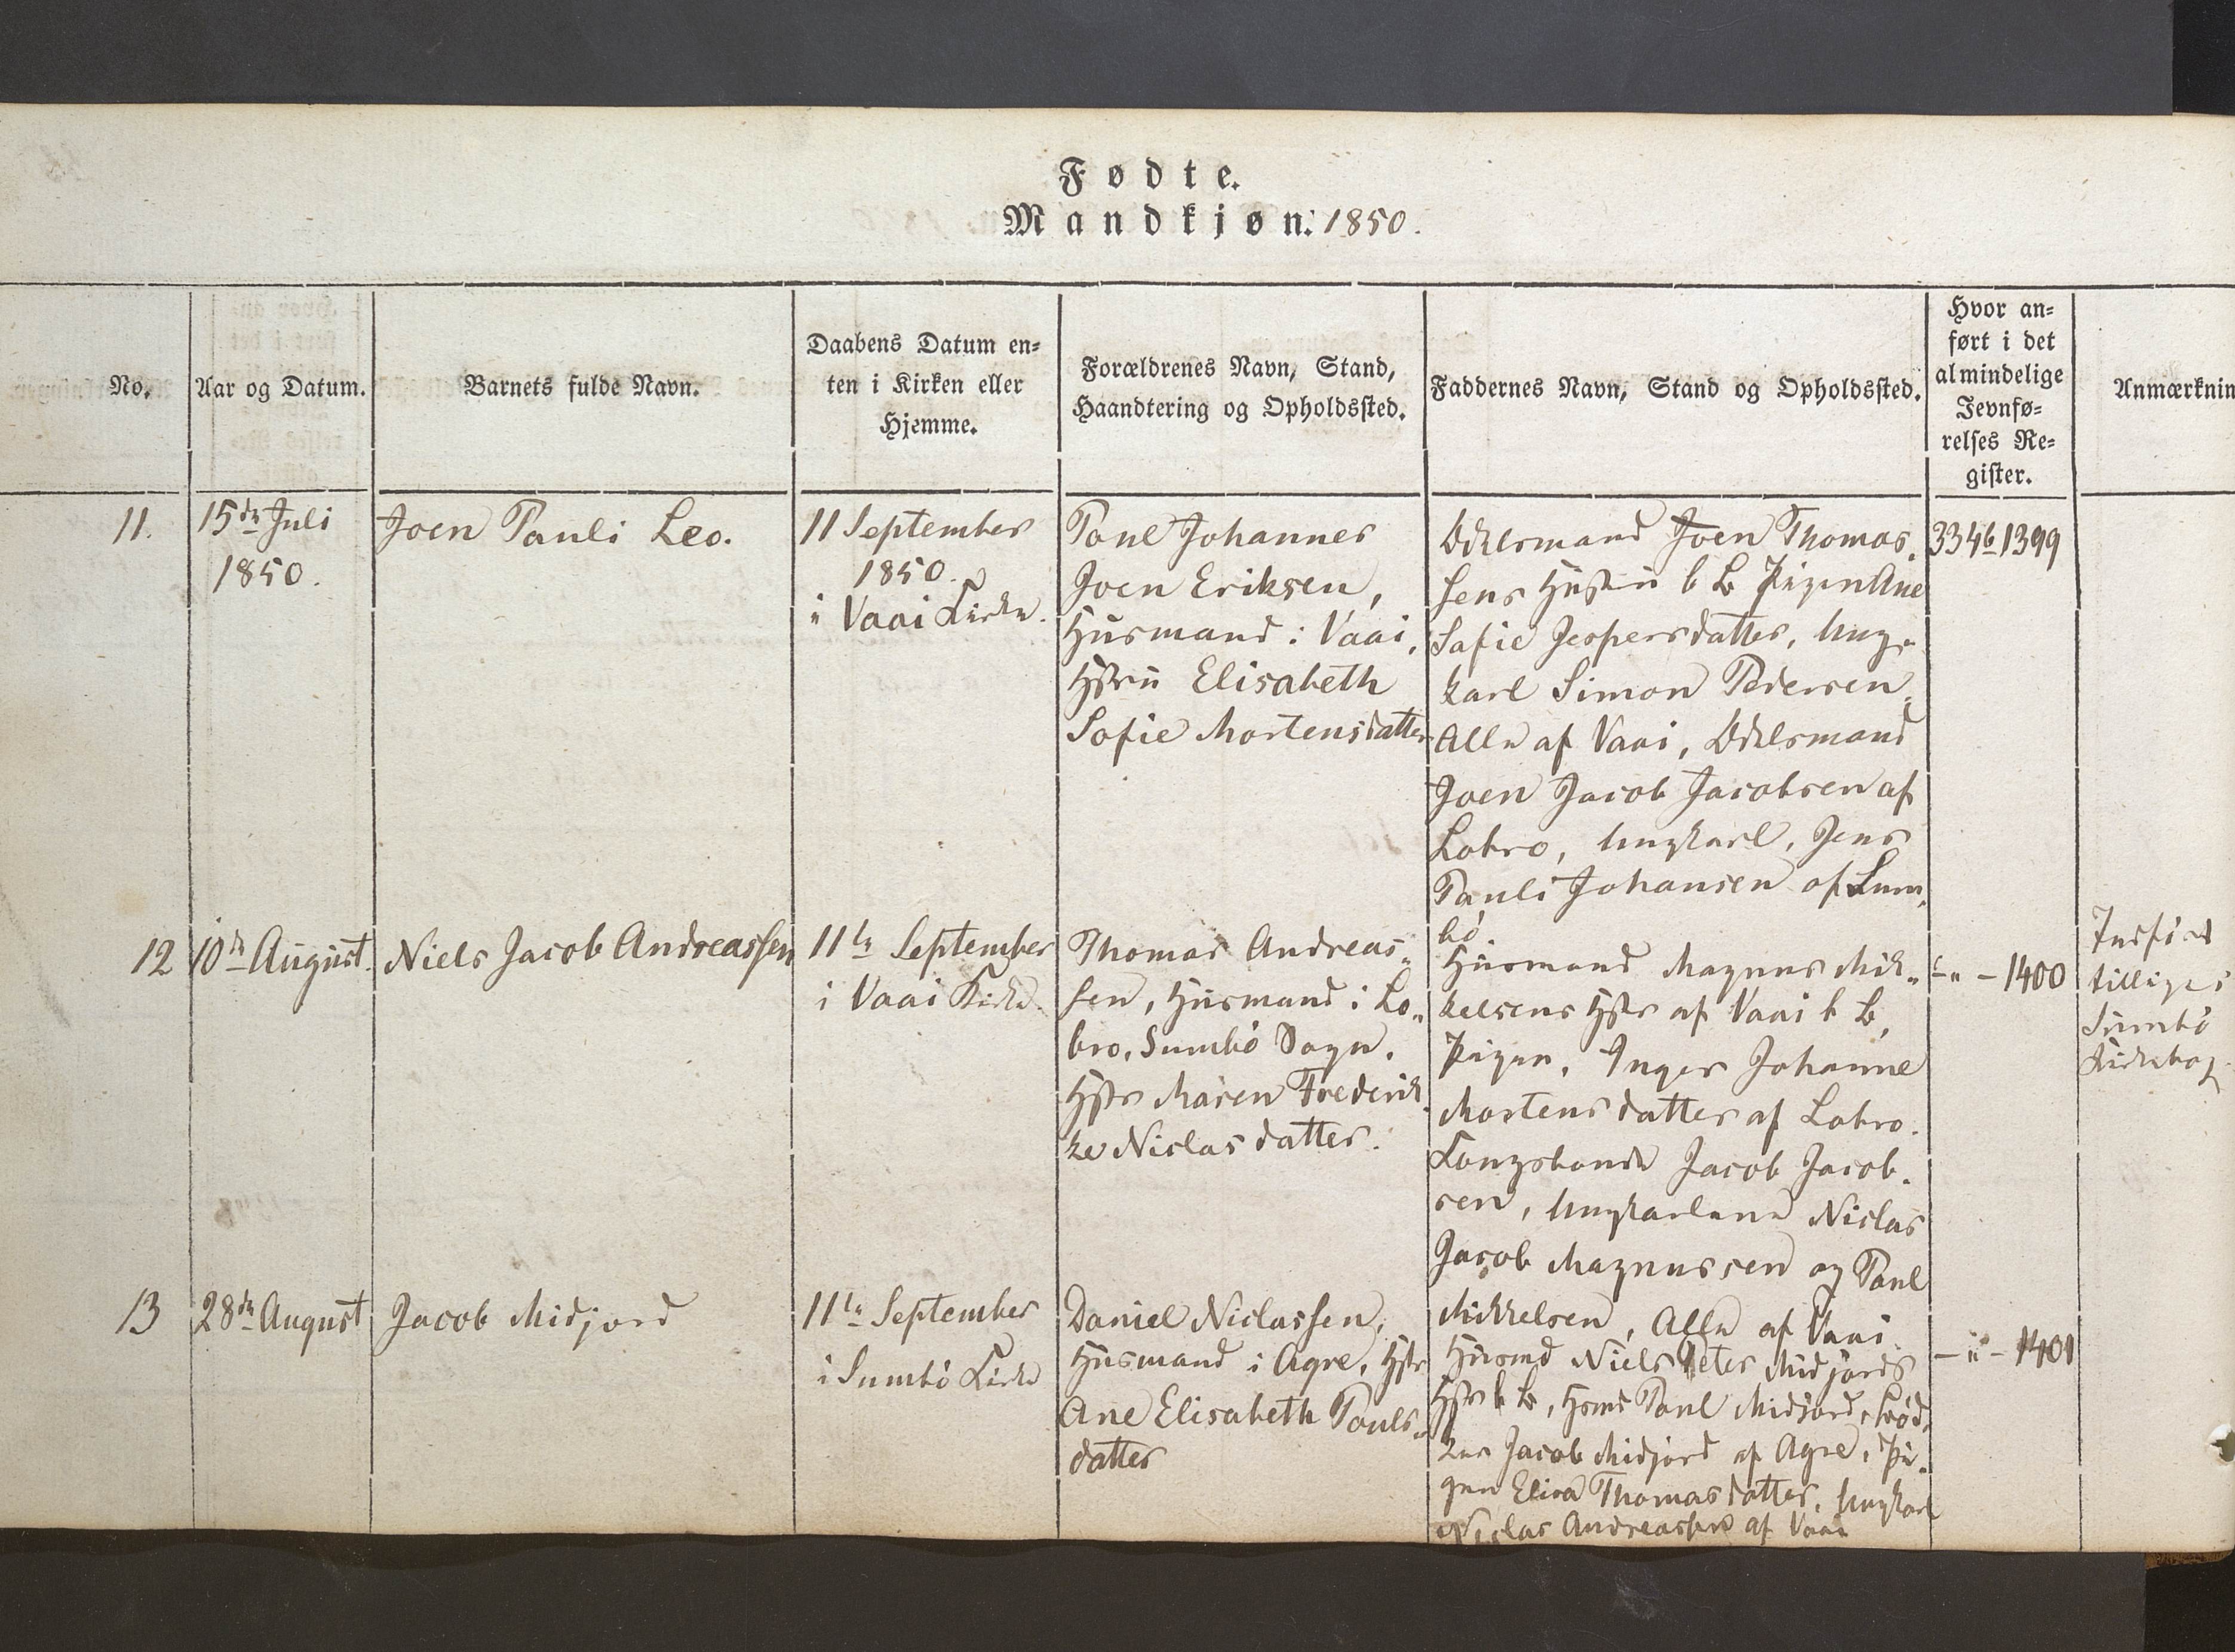 Fødte.
Mandkjøn. 1850.
No.
Aar og Datum.
Barnets fulde Navn.
Daabens Datum en=
ten i Kirken eller
Hjemme.
Forældrenes Navn, Stand,
Haandtering og Opholdssted.
Faddernes Navn, Stand og Opholdssted.
Hvor an=
ført i det
almindelige
Jevnfø=
relses Re=
gister.
Anmærknin
11.
15de Juli
1850.
Joen Pauli Leo.
11 September
1850.
i Vaai Kirke.
Poul Johannes
Joen Eriksen,
Husmand i Vaai,
Hustru Elisabeth
Sofie Mortensdatter
Odelsmand Joen Thomas,
sens Hustru b B Pigen Ane
Safie Jespersdatter, Ung-
karl Simon Pedersen,
Alle af Vaai, Odelsmand
Joen Jacob Jacobsen af
Lobro, Ungkarl, Jens
Pauli Johansen af Sum,
bø.
334b 1399
12
10de August.
Niels Jacob Andreassen
11te September
i Vaai Kirke.
Thomas Andreas„
sen, Husmand i Lo„
bro, Sumbø Sogn.
Hstr Maren Frederik
ke Niclasdatter.
Husmand Magnus Mik„
kelsens Hstr af Vaai b B,
Pigen, Inger Johanne
Mortensdatter af Lobro.
Kongsbonde Jacob Jacob.
sen, Ungkarlene Niclas
Jacob Magnussen og Poul
Mikkelsen, Alle af Vaai.
-„- 1400
Indført
tilliges
Sumbø
Kirkebog
13
28de August
Jacob Midjord
11te September
i Sumbø Kirke
Daniel Niclassen,
Husmand i Agre, Hstr
Ane Elisabeth Pouls„
datter
Husmd Niels Peter Midjords
Hstr b B, Hsmd Poul Midjord,
Jacob Midjord af Agre, Pi„
gen Elisa Thomasdatter, Ungkarl
Niclas Andreassen af Vaai
-„- 1401